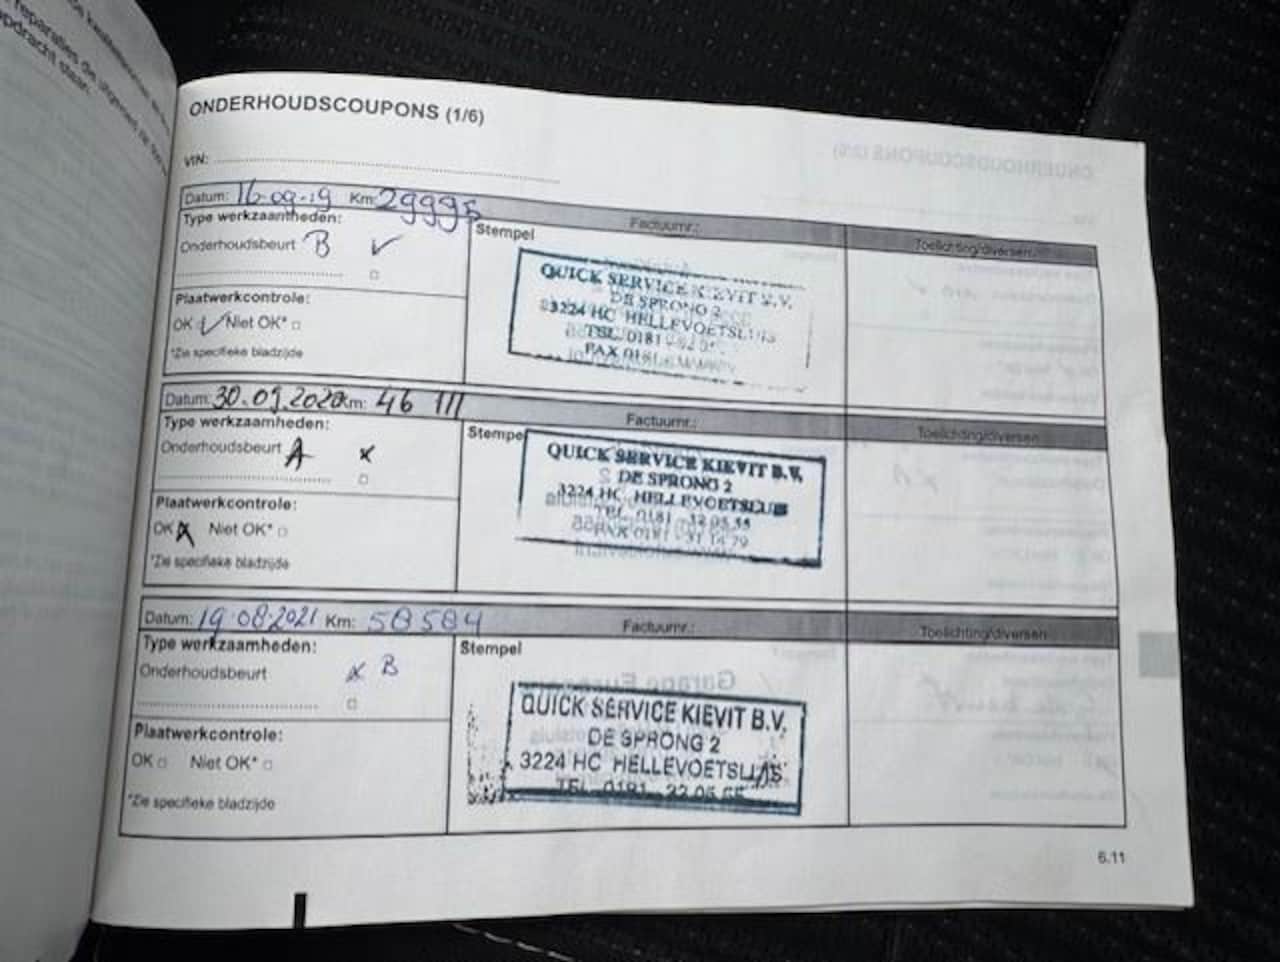 reparaties die uitgevoerd
opdracht staan.
ONDERHOUDSCOUPONS (1/6)
VIN:
Datum: 16-09-19 Km: 29995 Factuurnr.: Toelichting/diversen
Type werkzaamheden:
Stempel
Onderhoudsbeurt B ✓
QUICK SERVICE KIEVIT B.V.
DE SPRONG 2
3224 HC HELLEVOETSLUIS
TEL. 0181
FAX 0181
Plaatwerkcontrole:
OK ✓ Niet OK* □
*Zie specifieke bladzijde
Datum: 30.09.2020 Km: 46 111 Factuurnr.: Toelichting/diversen
Type werkzaamheden:
Stempel
Onderhoudsbeurt A x
QUICK SERVICE KIEVIT B.V.
DE SPRONG 2
3224 HC HELLEVOETSLUIS
TEL. 0181 - 32 05 55
FAX 0181 - 31 14 79
Plaatwerkcontrole:
OK x Niet OK* □
*Zie specifieke bladzijde
Datum: 19-08-2021 Km: 58584 Factuurnr.: Toelichting/diversen
Type werkzaamheden:
Stempel
Onderhoudsbeurt x B
QUICK SERVICE KIEVIT B.V.
DE SPRONG 2
3224 HC HELLEVOETSLUIS
TEL. 0181
Plaatwerkcontrole:
OK □ Niet OK* □
*Zie specifieke bladzijde
6.11